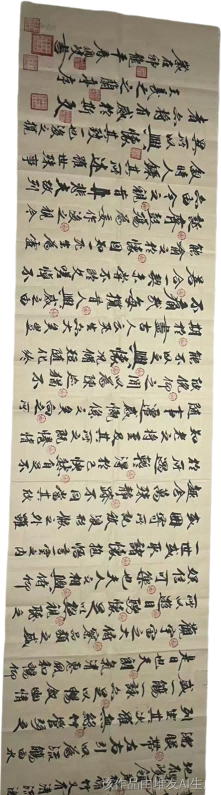 湍映帶左右引以為流觴曲水
列坐其次雖無絲竹管弦之
盛一觴一詠亦足以暢敘幽情
是日也天朗氣清惠風和暢仰
觀宇宙之大俯察品類之盛
所以遊目騁懷足以極視聽之
娛信可樂也夫人之相與俯仰
一世或取諸懷抱悟言一室之內
或因寄所託放浪形骸之外雖
趣舍萬殊靜躁不同當其欣
於所遇暫得於己怏然自足不
知老之將至及其所之既倦情
隨事遷感慨係之矣向之所
欣俛仰之間以為陳跡猶不
能不以之興懷況修短隨化終
期於盡古人云死生亦大矣豈
不痛哉每攬昔人興感之由
若合一契未嘗不臨文嗟悼不
能喻之於懷固知一死生為虛
誕齊彭殤為妄作後之視今
亦由今之視昔悲夫故列
敘時人錄其所述雖世殊事
異所以興懷其致一也後之攬
者亦將有感於斯文
王羲之蘭亭序